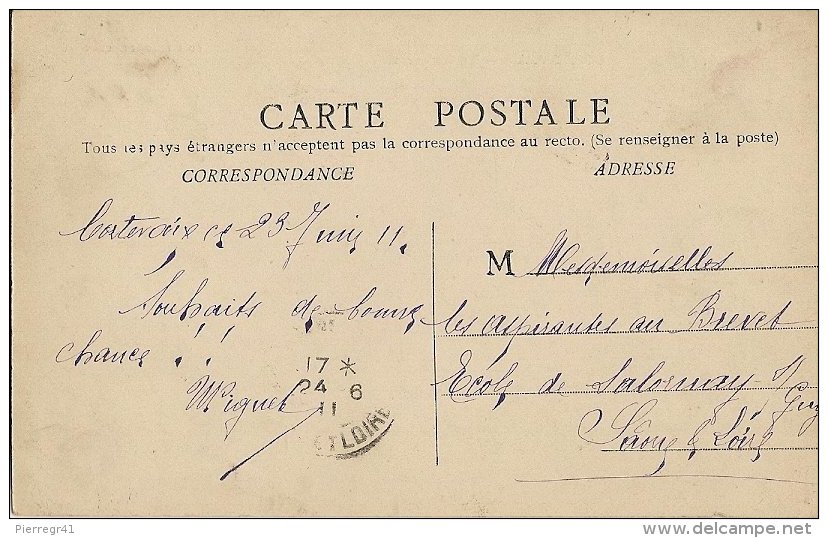 CARTE POSTALE
Tous les pays étrangers n'acceptent pas la correspondance au recto. (Se renseigner à la poste)
CORRESPONDANCE
ADRESSE
ce 23 Juin 11.
Souhaits de bonne
chance . !
Miguet
M Mesdemoiselles
les aspirantes au Brevet
Ecole de Salornay s/
Guye
Saône & Loire
17 *
24 6
11
ET LOIRE
Pierregr41
delcampe.net